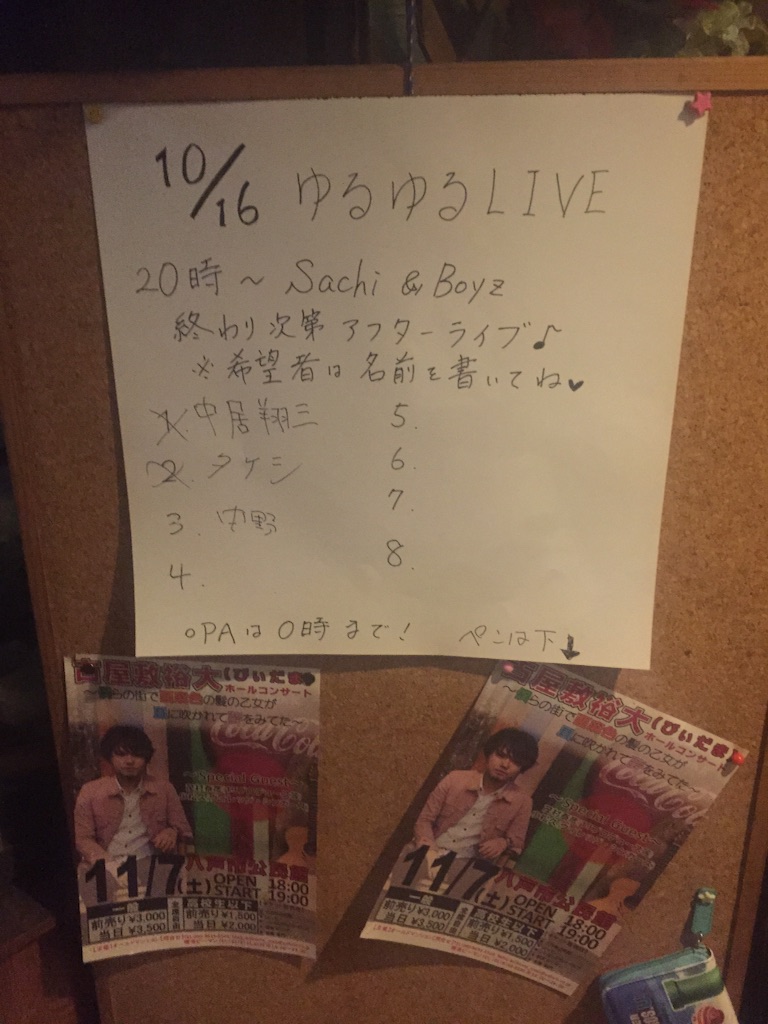 10/16 ゆるゆるLIVE
20時～ Sachi & Boyz
終わり次第 アフターライブ♪
※希望者は名前を書いてね♥
1. 中居翔三
2. タケシ
3. 中野
4.
5.
6.
7.
8.
○PAは0時まで!
ペンは下↓
古屋敷裕大(びぃだま)
ホールコンサート
～僕らの街で
色の髪の乙女が
に吹かれて
をみてた～
Coca-Cola
～Special Guest～
11/7(土)
八戸市公民館
OPEN 18:00
START 19:00
一般
前売り ¥3,000
当日 ¥3,500
全席自由
高校生以下
前売り ¥1,500
当日 ¥2,000
古屋敷裕大(びぃだま)
ホールコンサート
～僕らの街で
色の髪の乙女が
に吹かれて
をみてた～
Coca-Cola
～Special Guest～
11/7(土)
八戸市公民館
OPEN 18:00
START 19:00
一般
前売り ¥3,000
当日 ¥3,500
全席自由
高校生以下
前売り ¥1,500
当日 ¥2,000